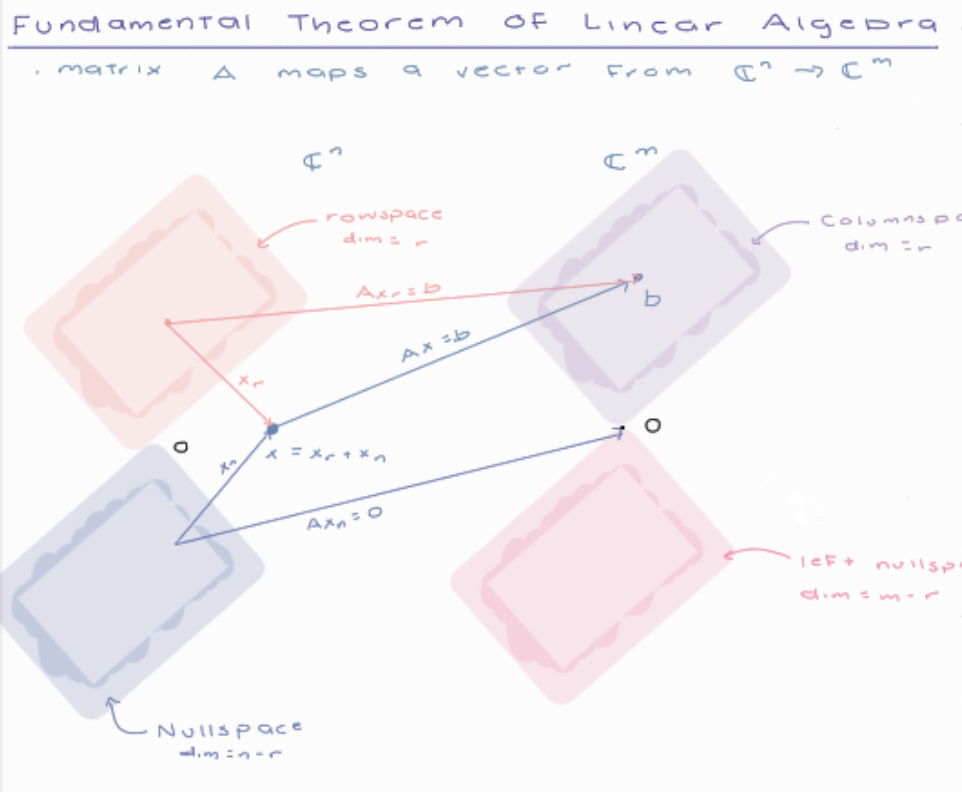 Fundamental Theorem of Linear Algebra
. matrix A maps a vector from ℂⁿ → ℂᵐ
ℂⁿ
ℂᵐ
rowspace
dim = r
Columnspa
dim = r
Axᵣ = b
b
Ax = b
xᵣ
0
0
xₙ
x = xᵣ + xₙ
Axₙ = 0
left nullspa
dim = m - r
Nullspace
dim = n - r